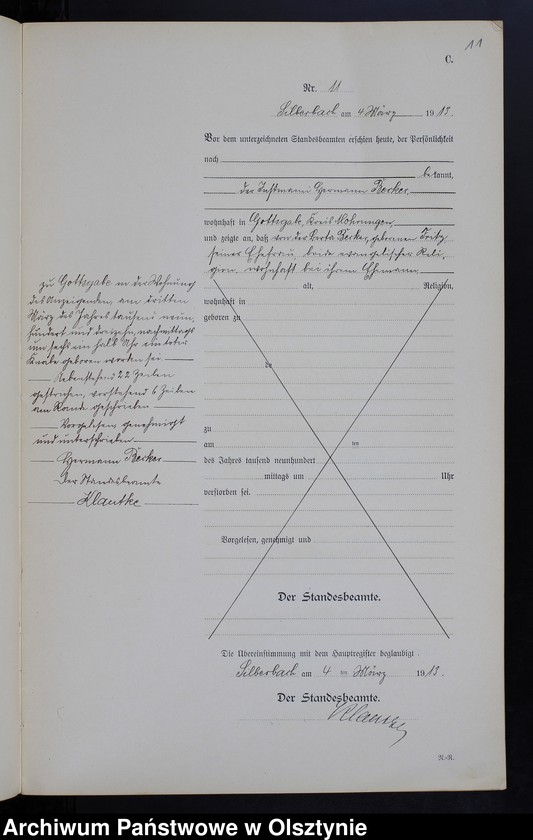 11
C.
Nr. 11
Silberbach am 4 März 1913.
Vor dem unterzeichneten Standesbeamten erschien heute, der Persönlichkeit
nach
bekannt,
der Instmann Hermann Becker,
wohnhaft in Gottsgab, Kreis Mohrungen,
und zeigte an, daß von der Berta Becker, geborenen Fritz,
seiner Ehefrau, beide evangelischer Reli-
gion, wohnhaft bei ihrem Ehemann
alt, Religion,
wohnhaft in
geboren zu
de
zu
am ten
des Jahres tausend neunhundert
mittags um Uhr
verstorben sei.
Vorgelesen, genehmigt und
Der Standesbeamte.
zu Gottsgab in der Wohnung
des Anzeigenden, am dritten
März des Jahres tausend neun-
hundert und dreizehn, nachmittags
um sechs ein halb Uhr ein toter
Knabe geboren worden sei
Nebenstehend 22 Zeilen
gestrichen, vorstehend 6 Zeilen
am Rande geschrieben
Vorgelesen, genehmigt
und unterschrieben
Hermann Becker
Der Standesbeamte
Klautke
Die Übereinstimmung mit dem Hauptregister beglaubigt.
Silberbach am 4 ten März 1913.
Der Standesbeamte.
Klautke
N.-R.
Archiwum Państwowe w Olsztynie